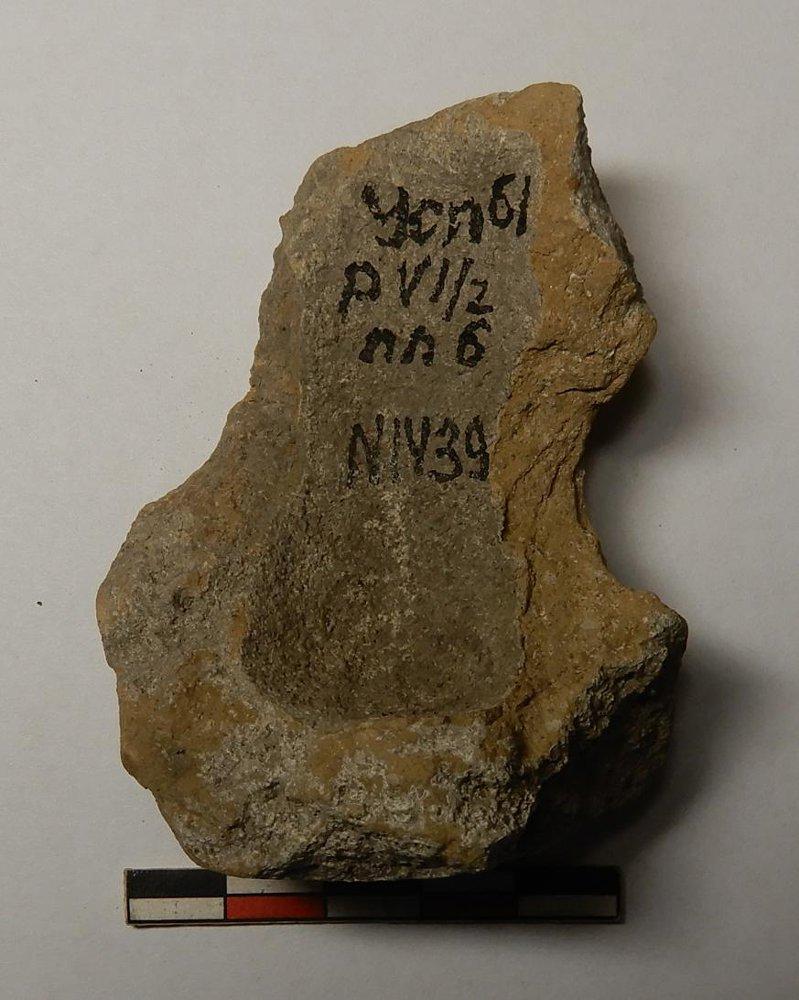 Успы
р VI/2
пл б
NIV39